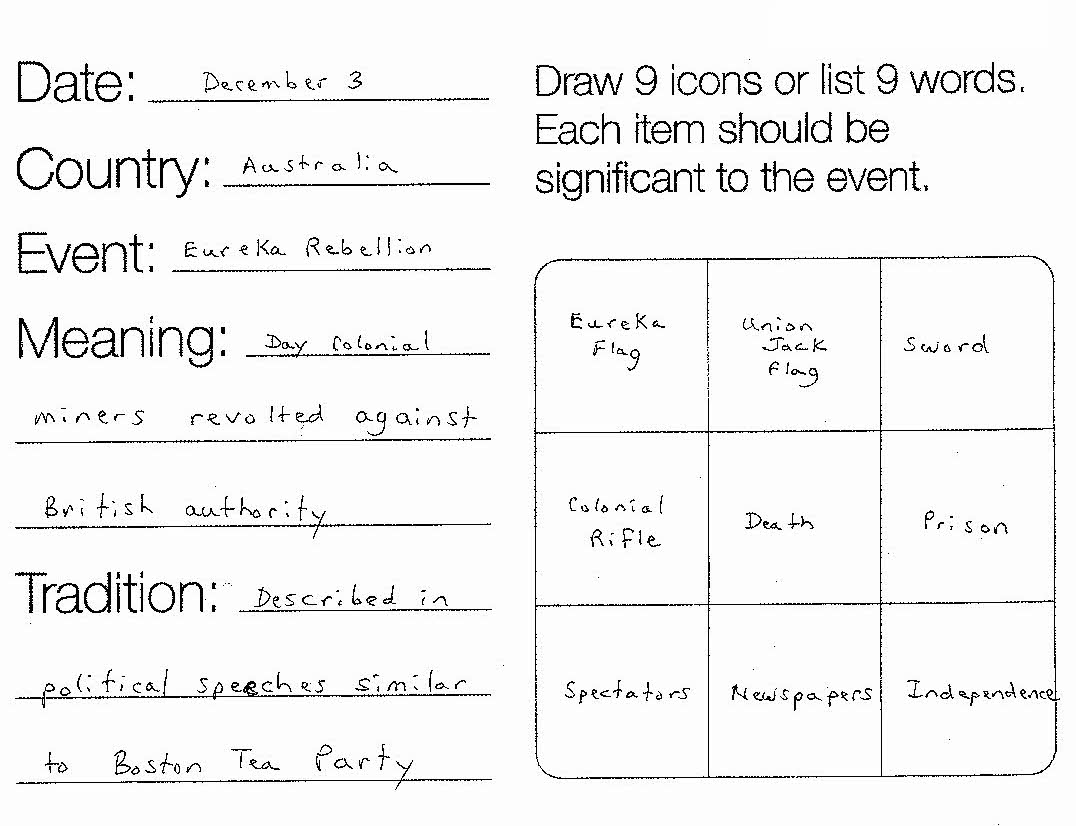 Date: December 3
Country: Australia
Event: Eureka Rebellion
Meaning: Day Colonial
miners revolted against
British authority
Tradition: Described in
political speeches similar
to Boston Tea Party
Draw 9 icons or list 9 words.
Each item should be
significant to the event.
Eureka
Flag
Union
Jack
Flag
Sword
Colonial
Rifle
Death
Prison
Spectators
Newspapers
Independence